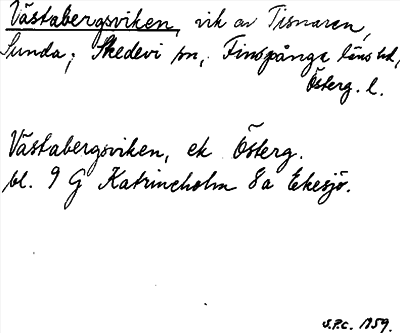 Västabergsviken, vik av Tisnaren,
Sunda, Skedevi sn, Finspånga läns hd,
Österg. l.
Västabergsviken, ek Österg.
bl. 9 G Katrineholm 8a Ekesjö.
S.P.C. 1959.